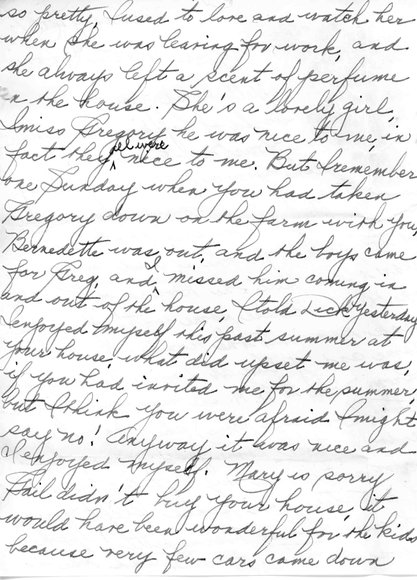 so pretty, I used to love and watch her
when she was leaving for work, and
she always left a scent of perfume
in the house. She's a lovely girl,
I miss Gregory he was nice to me, in
fact they all were nice to me. But I remember
one Sunday when you had taken
Gregory down on the farm with you,
Bernedette was out, and the boys came
for Greg, and I missed him coming in
and out of the house, I told Dick yesterday
I enjoyed myself this past summer at
your house, what did upset me was,
if you had invited me for the summer,
but I think you were afraid I might
say no! Anyway it was nice and
I enjoyed myself. Mary is sorry
Gail didn't buy your house, it
would have been wonderful for the kids
because very few cars came down